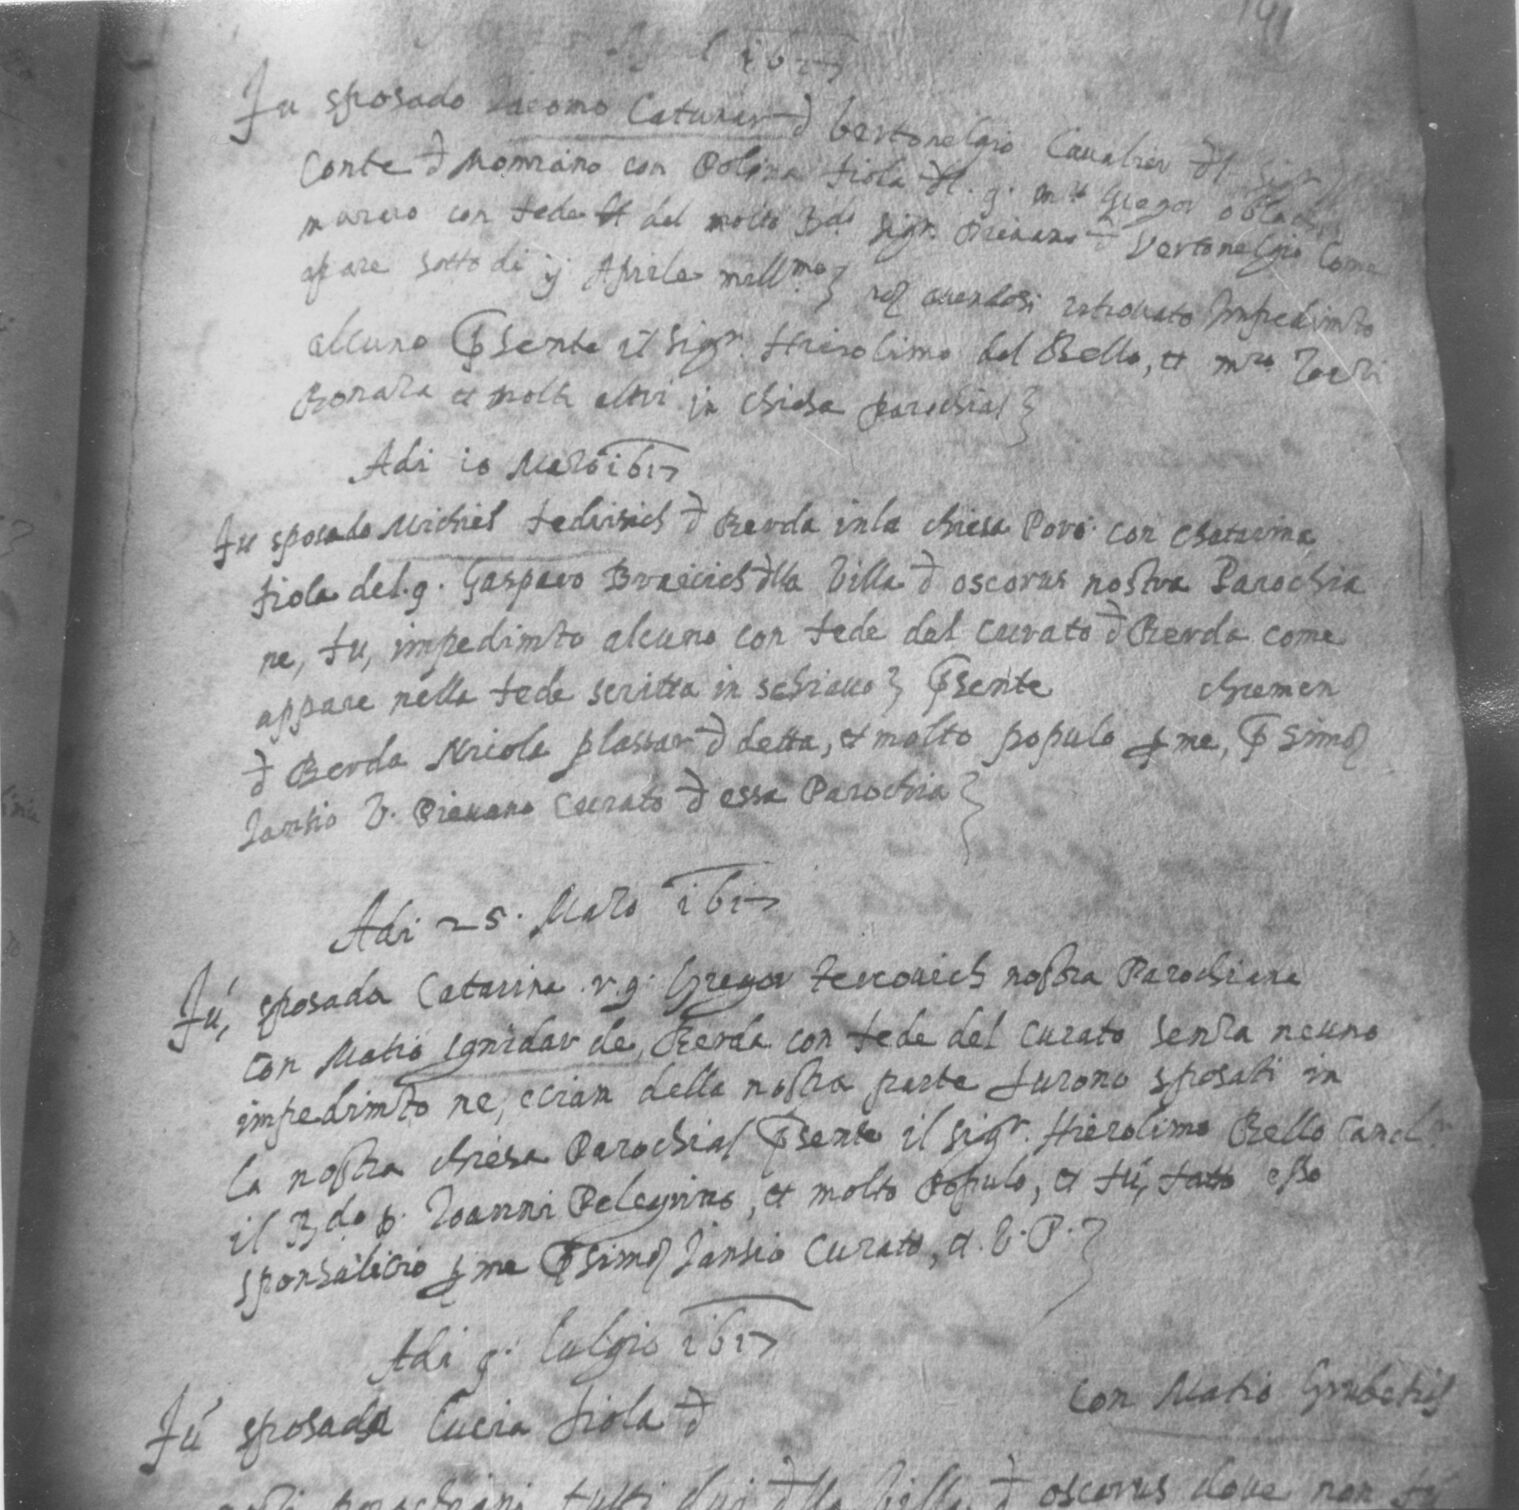 1617
Fu sposado Iacomo Catunar đ Vertonelgio Cavalier đl Sigr
Conte đ Momiano con Polina fiola đl. q. mro Gregor
con fede del molto Rdo sigr. Pievano đ Vertonelgio come
apare sotto di ij Aprile mill.mo avendosi ritrovato impedimto
alcuno p̄sente il sigr. Hierolimo del Bello, et mro
et molti altri in chiesa parochial
Adi 10 Mazo 1617
Fu sposado Michiel đ Berda in la chiesa con Chatarina
fiola del. q. Gasparo Braicich đlla Villa đ oscorus nostra Parochia
ne, fu, impedimto alcuno con fede del curato đ Berda come
appare nella fede scritta in schiavo p̄sente chremen
đ Berda Nicola plassar đ detta, et molto populo p me, P̄ Simon
V. Pievano Curato đ essa Parochia
Adi 25. Mazo 1617
Fú, sposada Catarina .r.q. Gregor nostra Parochiana
con Matio de, Berda con fede del curato senza neuno
impedimto ne, ecian della nostra parte furono sposati in
la nostra chiesa Parochial p̄sente il sigr. Hierolimo Bello Cancl.r
il Rdo p. Ioanni Pelegrino, et molto Populo, et fú, fatto esso
sponsalicio p me P̄ Simon Curato, et. V. P.
Adi 9. lulgio 1617
Fú sposada Lucia fiola đ con Matio Grubchich
parochiani tutti dui đlla villa đ oscorus dove non fú